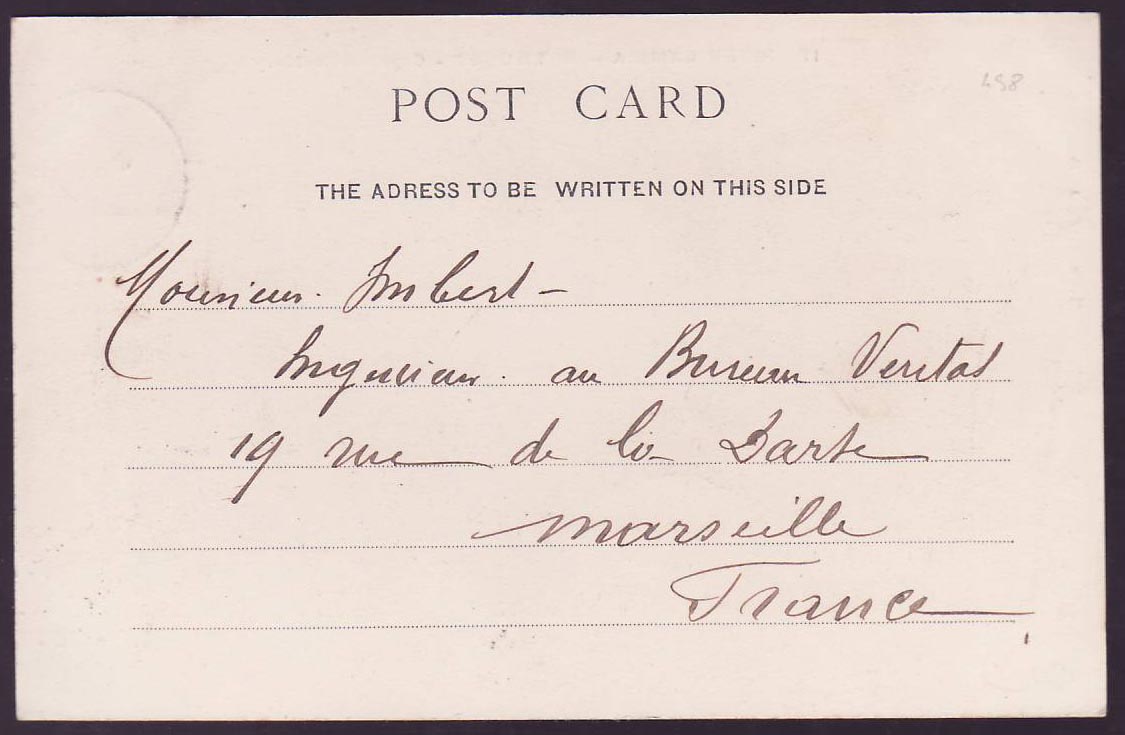 498
POST CARD
THE ADRESS TO BE WRITTEN ON THIS SIDE
Monsieur Imbert -
Ingénieur au Bureau Veritas
19 rue de la Darse
Marseille
France